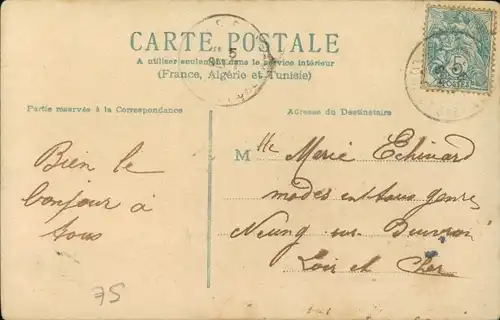 CARTE POSTALE
A utiliser seulement dans le service intérieur
(France, Algérie et Tunisie)
Partie réservée à la Correspondance
Adresse du Destinataire
Bien le
bonjour à
tous
Mlle Marie Echinard
modes en tous genres
Neung sur Beuvron
Loir et Cher
75
5
5